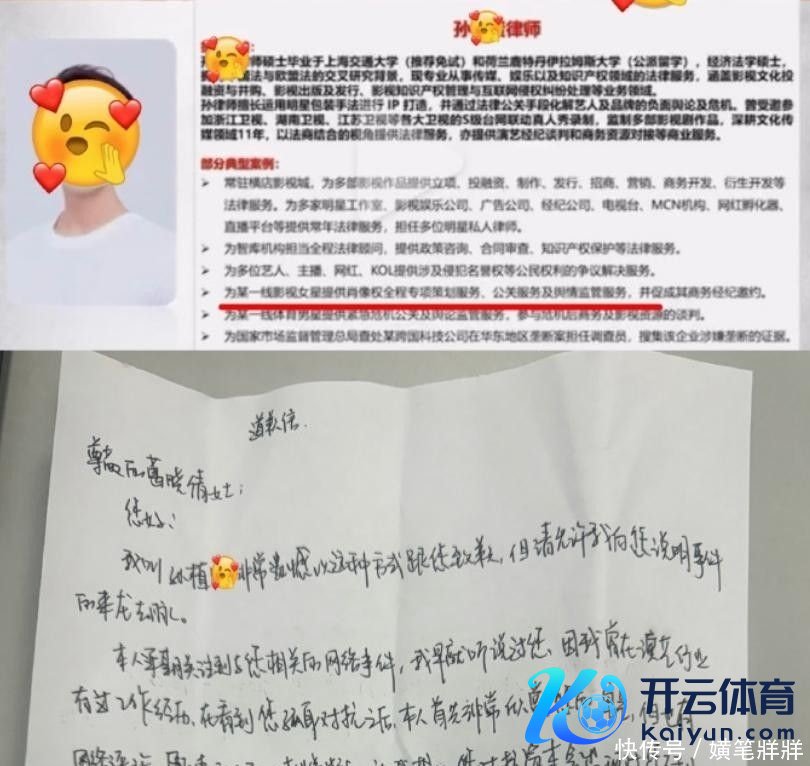 孙 律师
师硕士毕业于上海交通大学（推荐免试）和荷兰鹿特丹伊拉姆斯大学（公派留学），经济法学硕士，
法与欧盟法的交叉研究背景。现专业从事传媒、娱乐以及知识产权领域的法律服务，涵盖影视文化投
融资与并购、影视出版及发行、影视知识产权管理与互联网侵权纠纷处理等业务领域。
孙律师擅长运用明星包装手法进行 IP 打造，并通过法律公关手段化解艺人及品牌的负面舆论及危机。曾受邀参
加浙江卫视、湖南卫视、江苏卫视等各大卫视的S级台网联动真人秀录制，监制多部影视剧作品，深耕文化传
媒领域11年，以法商结合的视角提供法律服务，亦提供演艺经纪谈判和商务资源对接等商业服务。
部分典型案例：
常驻横店影视城，为多部影视作品提供立项、投融资、制作、发行、招商、营销、商务开发、衍生开发等
法律服务。为多家明星工作室、影视娱乐公司、广告公司、经纪公司、电视台、MCN机构、网红孵化器、
直播平台等提供常年法律服务，担任多位明星私人律师。
为智库机构担当全程法律顾问，提供政策咨询、合同审查、知识产权保护等法律服务。
为多位艺人、主播、网红、KOL提供涉及侵犯名誉权等公民权利的争议解决服务。
为某一线影视女星提供肖像权全程专项策划服务、公关服务及舆情监管服务，并促成其商务经纪邀约。
为某一线体育男星提供紧急危机公关及舆论监管服务，参与危机后商务及影视资源的谈判。
为国家市场监督管理总局查处某跨国科技公司在华东地区垄断案担任调查员，搜集该企业涉嫌垄断的证据。
道歉信
尊敬的葛晓倩女士：
您好：
我叫孙植 非常抱憾以这种方式跟您致歉，但请允许我向您说明事件
的来龙去脉。
本人早期关注到与您相关的网络事件，我早就听说过您，因我曾在演艺行业
有过工作经历，在看到您 对抗之后，本人首先非常
开云体育
kaiyun.com
快传号／嫹笔牂牂